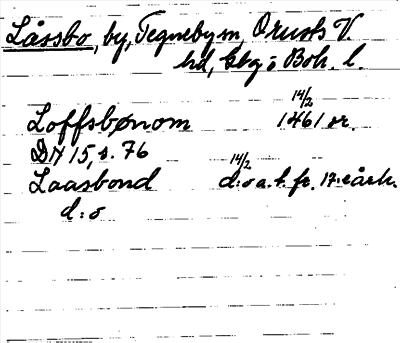 Låssbo, by, Tegneby sn, Orusts V
hd, Gbg o Boh. l.
Loffsbønom 14/2 1461 or.
DN 15, s. 76
Laasbond 14/2 d:o a.f. fr. 17:e årh.
d:o